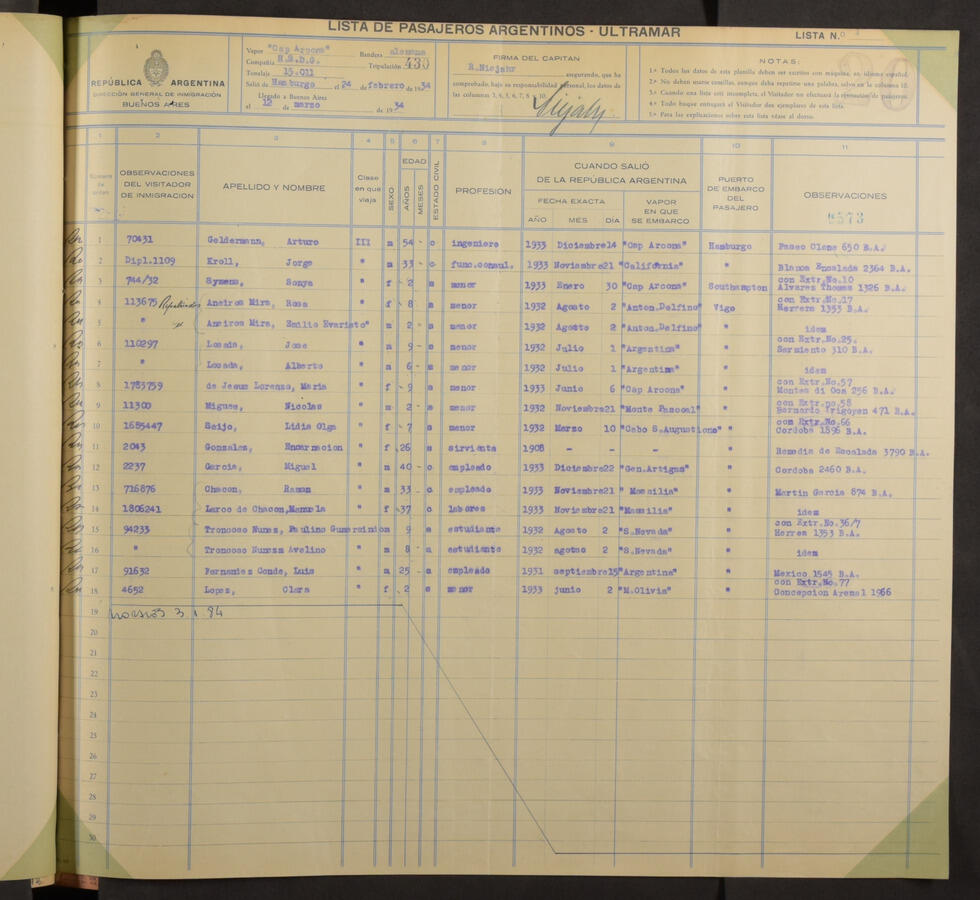 LISTA DE PASAJEROS ARGENTINOS - ULTRAMAR
LISTA N.o
REPÚBLICA ARGENTINA
DIRECCIÓN GENERAL DE INMIGRACIÓN
BUENOS AIRES
Vapor "Cap Arcona" Bandera alemana
Compañia H.S.D.G. Tripulación 430
Tonelaje 15.011
Salió de Hamburgo el 24 de febrero de 1934
Llegado a Buenos Aires
el 12 de marzo de 1934
FIRMA DEL CAPITAN
R.Niejahr asegurando, que ha
comprobado, bajo su responsabilidad personal, los datos de
las columnas 3, 4, 5, 6, 7, 8 y 10.
Niejahr
NOTAS:
1.ª Todos los datos de esta planilla deben ser escritos con máquina, en idioma español.
2.ª No deben usarse comillas, aunque deba repetirse una palabra, salvo en la columna 10.
3.ª Cuando una lista esté incompleta, el Visitador no efectuará la operación de pasajeros.
4.ª Todo buque entregará al Visitador dos ejemplares de esta lista.
5.ª Para las explicaciones sobre esta lista véase al dorso.
20
1 2 3 4 5 6 7 8 9 10 11
Número de orden
OBSERVACIONES DEL VISITADOR DE INMIGRACIÓN
APELLIDO Y NOMBRE
Clase en que viaja
SEXO
EDAD
AÑOS
MESES
ESTADO CIVIL
PROFESIÓN
CUANDO SALIÓ
DE LA REPÚBLICA ARGENTINA
FECHA EXACTA
AÑO MES DIA
VAPOR EN QUE SE EMBARCO
PUERTO DE EMBARCO DEL PASAJERO
OBSERVACIONES
1 70431 Geldermann, Arturo III m 54 - c ingeniero 1933 Diciembre 14 "Cap Arcona" Hamburgo Paseo Clone 650 B.A.
2 Dipl.1109 Kroll, Jorge " m 33 - c func.consul. 1933 Noviembre 21 "California" " Blanco Encalada 2364 B.A.
3 744/32 Symens, Sonya " f 2 s menor 1933 Enero 30 "Cap Arcona" Southampton con Extr.No.10 Alvarez Thomas 1326 B.A.
4 113675 Aneiros Mira, Rosa " f 8 s menor 1932 Agosto 2 "Anton.Delfino" Vigo con Extr.No.17 Herrera 1353 B.A.
5 " Aneiros Mira, Emilio Evaristo " m 2 s menor 1932 Agosto 2 "Anton.Delfino" " idem
6 110297 Losada, Jose " m 9 - s menor 1932 Julio 1 "Argentina" " con Extr.No.25. Sarmiento 310 B.A.
7 " Losada, Alberto " m 6 - s menor 1932 Julio 1 "Argentina" " idem
8 1783759 de Jesus Lorenzo, Maria " f 9 s menor 1933 Junio 6 "Cap Arcona" " con Extr.No.57 Montes di Oca 256 B.A.
9 11300 Miguez, Nicolas " m 2 - s menor 1932 Noviembre 21 "Monte Pascoal" " con Extr.no.58 Bernardo Yrigoyen 471 B.A.
10 1685447 Seijo, Lidia Olga " f 7 s menor 1932 Marzo 10 "Cabo S.Augustione" " con Extr.No.66 Cordoba 1896 B.A.
11 2043 Gonzales, Encarnacion " f 26 s sirvienta 1908 - - - " Remedio de Escalada 3790 B.A.
12 2237 Garcia, Miguel " m 40 - c empleado 1933 Diciembre 22 "Gen.Artigas" " Cordoba 2460 B.A.
13 716876 Chacon, Ramon " m 33 c empleado 1933 Noviembre 21 "Massilia" " Martin Garcia 874 B.A.
14 1806241 Larco de Chacon, Manuela " f 37 c labores 1933 Noviembre 21 "Massilia" " idem
15 94233 Troncoso Nunez, Paulino Gumersindo m 9 s estudiante 1932 Agosto 2 "S.Nevada" " con Extr.No.36/7 Herrera 1353 B.A.
16 " Troncoso Nunezz Avelino " m 8 - s estudiante 1932 agotso 2 "S.Nevada" " idem
17 91632 Fernandez Conde, Luis " m 25 - s empleado 1931 septiembre 15 "Argentina" " Mexico 1545 B.A.
18 4652 Lopez, Clara " f 2 s menor 1933 junio 2 "M.Olivia" " con Extr.No.77 Concepcion Arenal 1966
19
20
21
22
23
24
25
26
27
28
29
30